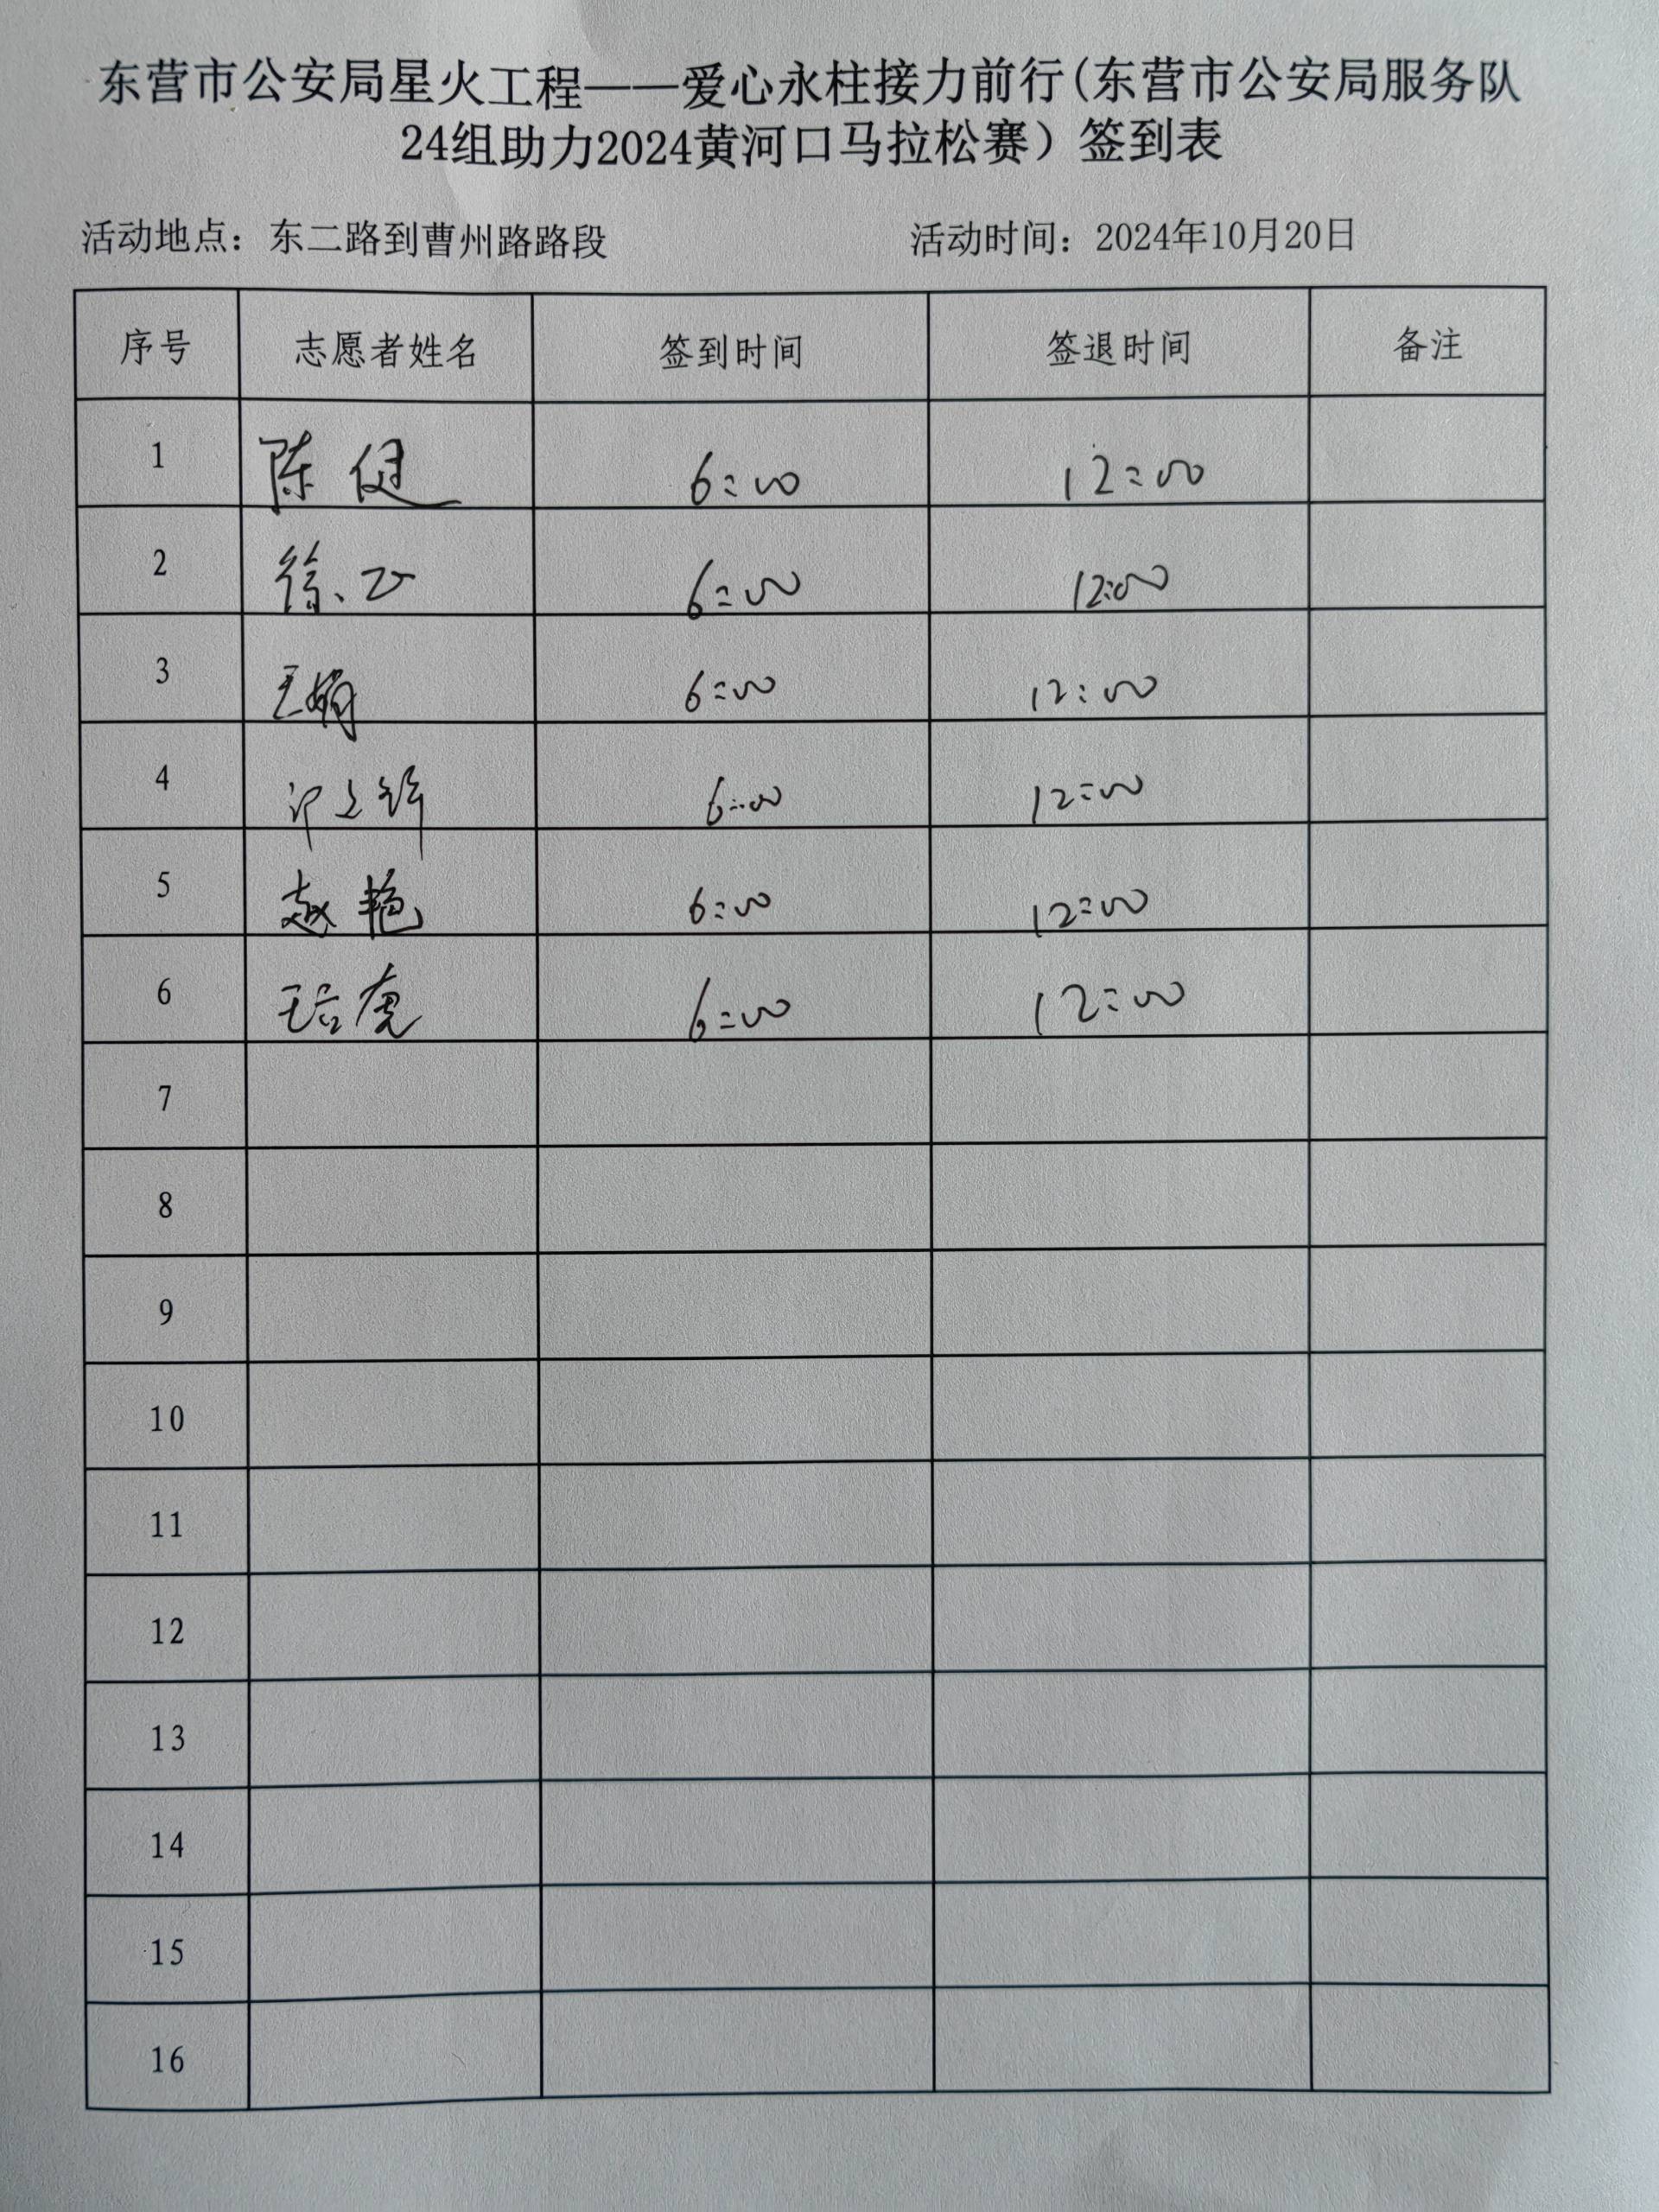 东营市公安局星火工程——爱心永柱接力前行(东营市公安局服务队
24组助力2024黄河口马拉松赛）签到表
活动地点：东二路到曹州路路段 活动时间：2024年10月20日
序号 志愿者姓名 签到时间 签退时间 备注
1 陈健 6:00 12:00
2 徐 6:00 12:00
3 王娟 6:00 12:00
4 6:00 12:00
5 赵艳 6:00 12:00
6 虎 6:00 12:00
7
8
9
10
11
12
13
14
15
16